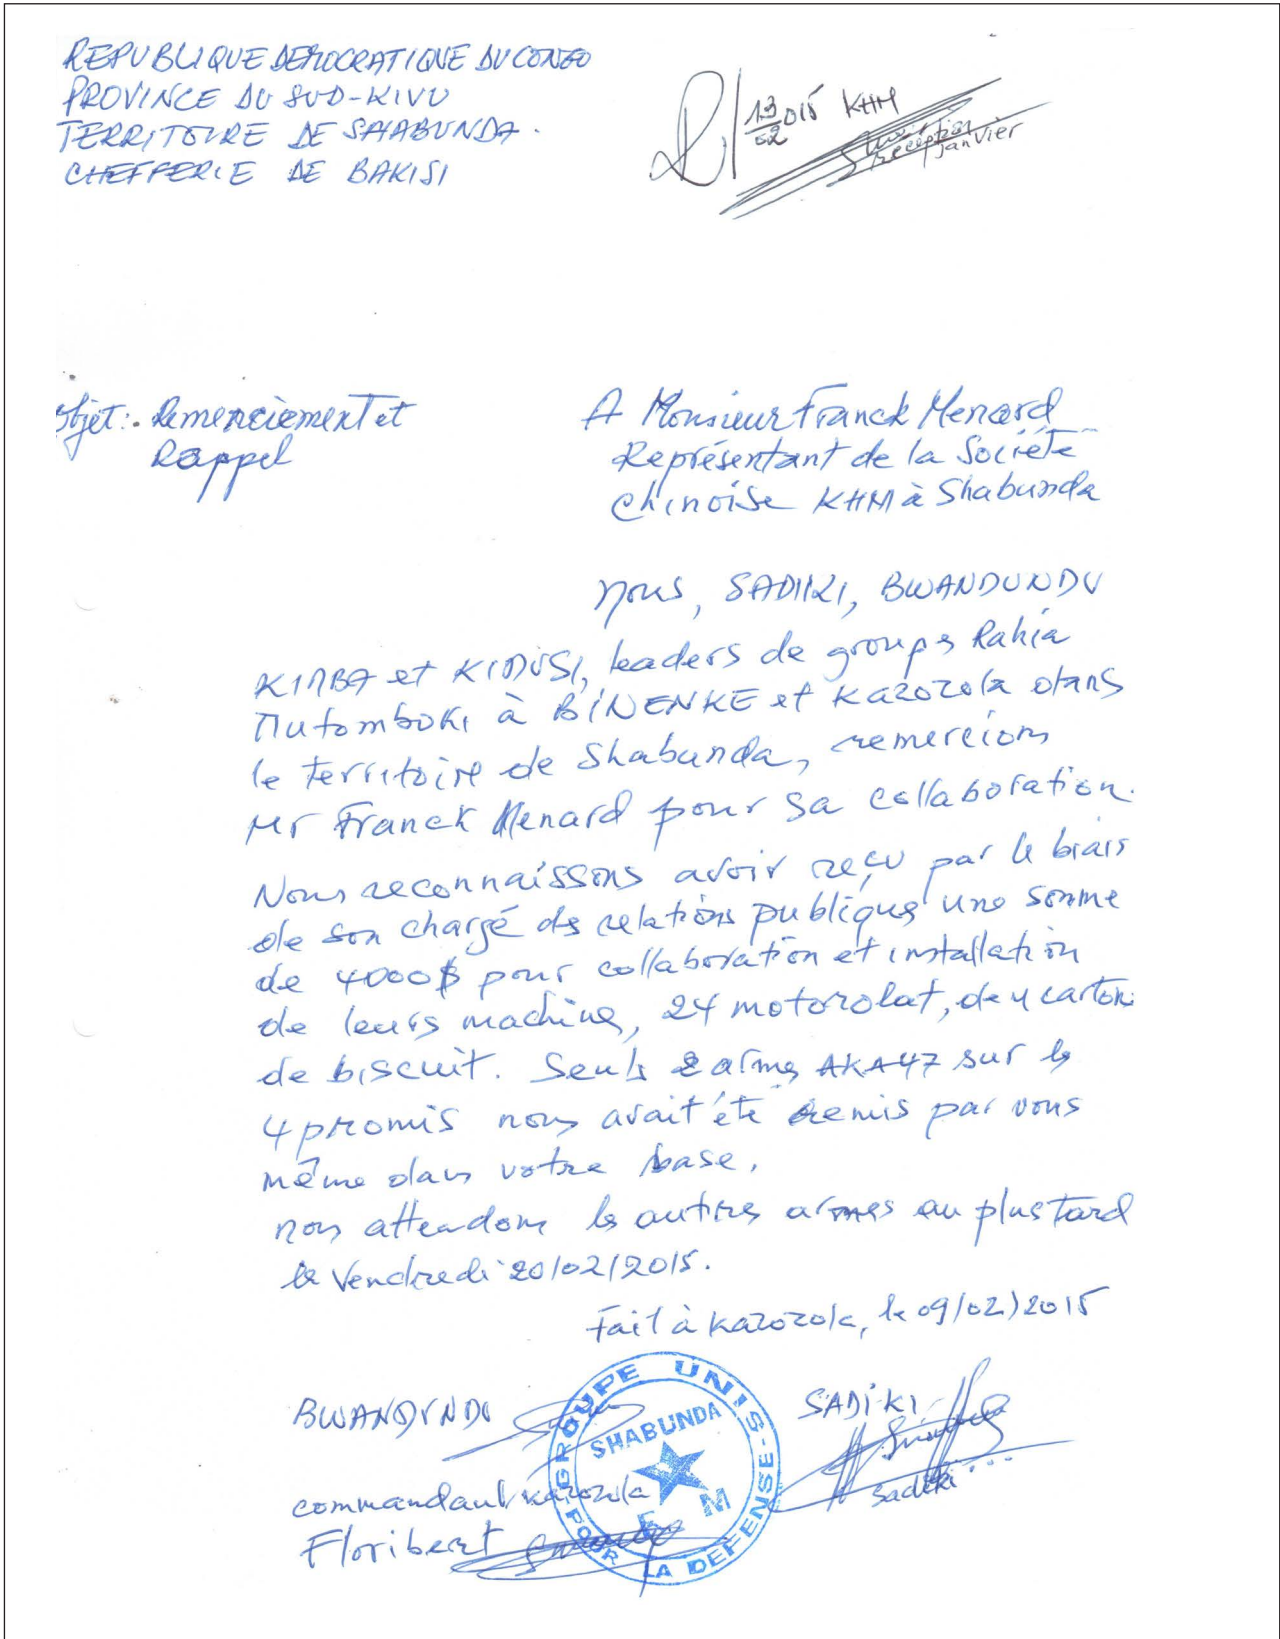 REPUBLIQUE DEMOCRATIQUE DU CONGO
PROVINCE DU SUD-KIVU
TERRITOIRE DE SHABUNDA.
CHEFFERIE DE BAKISI
13/02 015 KHM
reception
janvier
Objet: Remerciement et
Rappel
A Monsieur Franck Menard
Représentant de la Société
chinoise KHM à Shabunda
Nous, SADIKI, BWANDUNDU
KIMBA et KIMUSI, leaders de groupes Rahia
Mutomboki à BINENKE et Kazozola dans
le territoire de Shabunda, remercions
Mr Franck Menard pour sa collaboration.
Nous reconnaissons avoir reçu par le biais
de son chargé des relations publiques une somme
de 4000$ pour collaboration et installation
de leurs machines, 24 motorolat, de 4 cartons
de biscuit. Seuls 2 armes AKA47 sur les
4 promis nous avait été remis par vous
même dans votre base.
nous attendons les autres armes au plus tard
le Vendredi 20/02/2015.
Fait à Kazozola, le 09/02/2015
BWANDUNDU
SADIKI
Sadiki
commandant kazozola
Floribert
GROUPE UNIS-POUR LA DEFENSE-
SHABUNDA
M